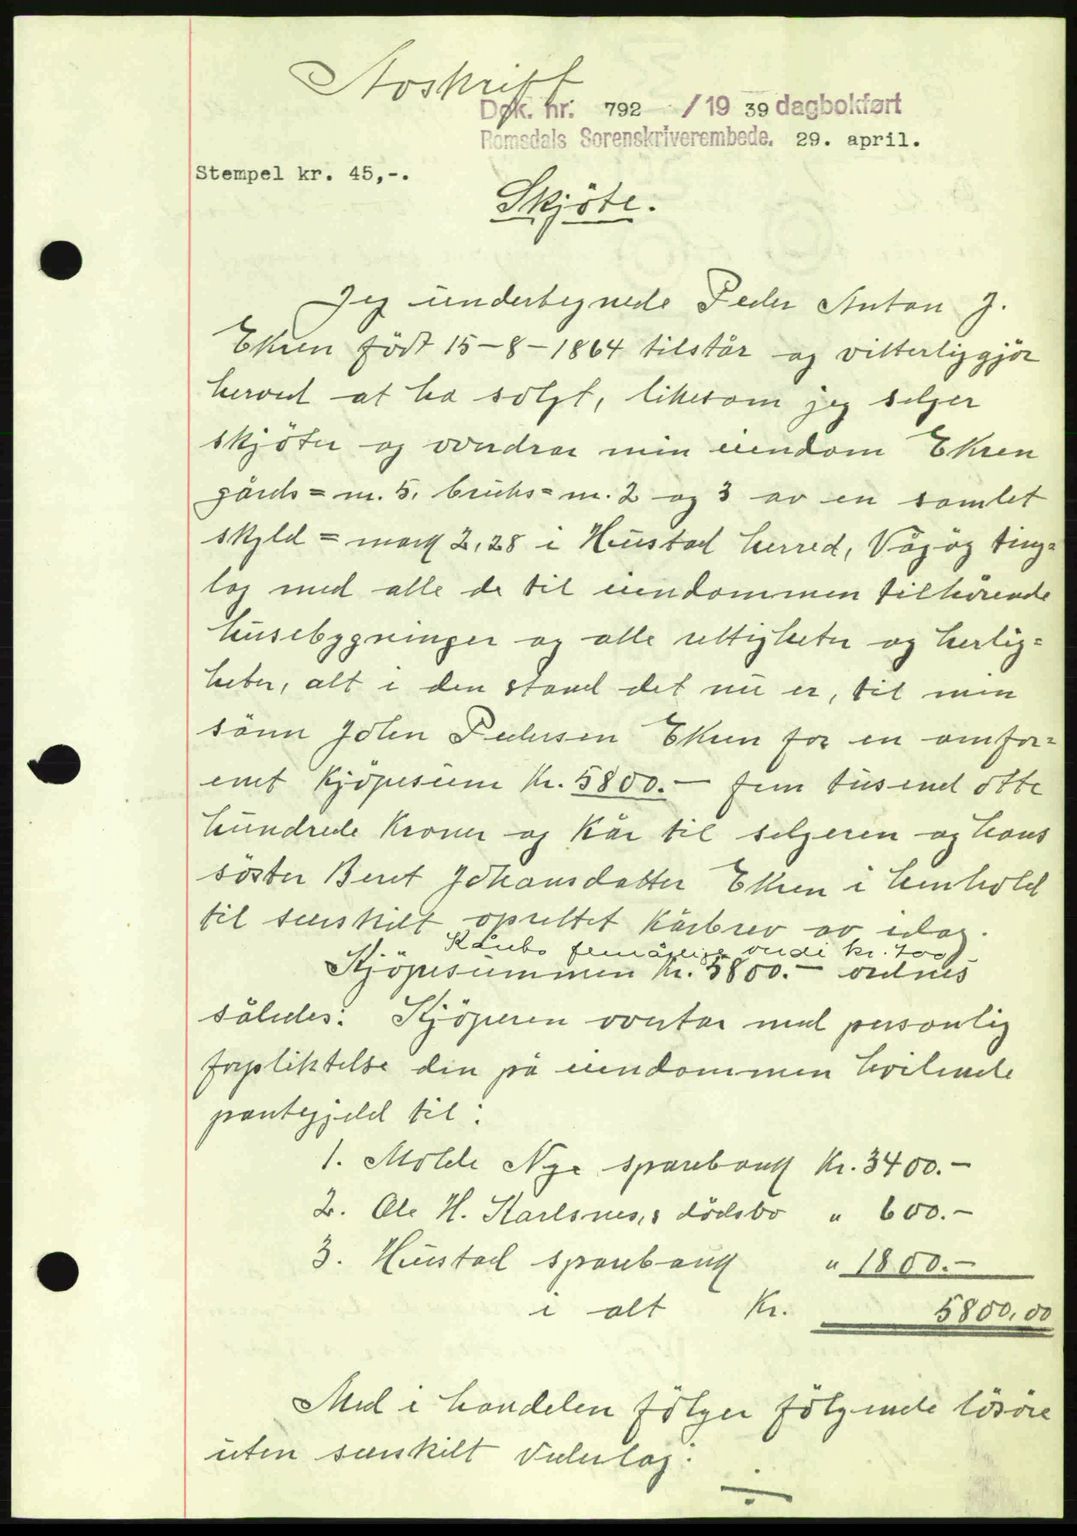 Avskrift
Dok. nr. 792 / 19 39 dagbokført
Romsdals Sorenskriverembede. 29. april.
Stempel kr. 45,-.
Skjöte.
Jeg undertegnede Peder Anton J.
Ekren född 15-8-1864 tilstår og vitterliggjör
herved at ha solgt, likesom jeg selger
skjöter og overdrar min eiendom Ekren
gårds= nr. 5, bruks= nr. 2 og 3 av en samlet
skyld = mark 2,28 i Hustad herred, Vågöy ting=
lag med alle de til eiendommen tilhörende
husebygninger og alle rettigheter og herlig=
heter, alt i den stand det nu er, til min
sönn John Pedersen Ekren for en omfor=
enet kjöpesum kr. 5800.- fem tusend otte
hundrede kroner og kår til selgeren og hans
söster Beret Johansdatter Ekren i henhold
til særskilt oprettet kårbrev av idag.
Kårets femårige verdi kr. 700
Kjöpesummen kr. 5800.- ordnes
således: Kjöperen overtar med personlig
forpliktelse den på eiendommen hvilende
pantegjeld til:
1. Molde Nye sparebank Kr. 3400.-
2. Ole H. Karlsnes,s dödsbo " 600.-
3. Hustad sparebank " 1800.-
i alt Kr. 5800,00
Med i handelen fölger fölgende lösöre
uten særskilt vederlag: